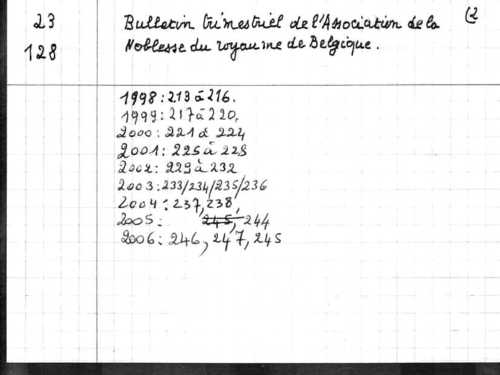 23 Bulletin trimestriel de l'Association de la (2
128 Noblesse du royaume de Belgique.
1998: 213 à 216.
1999: 217 à 220,
2000: 221 à 224
2001: 225 à 228
2002: 229 à 232
2003: 233/234/235/236
2004: 237, 238,
2005: 245, 244
2006: 246, 247, 245